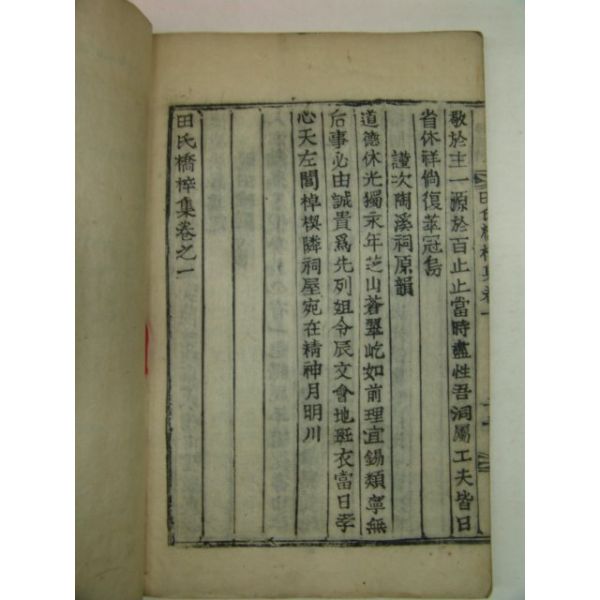 敬於主一源於百止止當時盡性吾洞屬工夫皆日
省休祥倘復萃冠島
謹次陶溪祠原韻
道德休光獨永年芝山蒼翠屹如前理宜錫類寧無
后事必由誠貴爲先列俎令辰文會地斑衣當日孝
心天左閭棹楔隣祠屋宛在精神月明川
田氏橋梓集卷之一